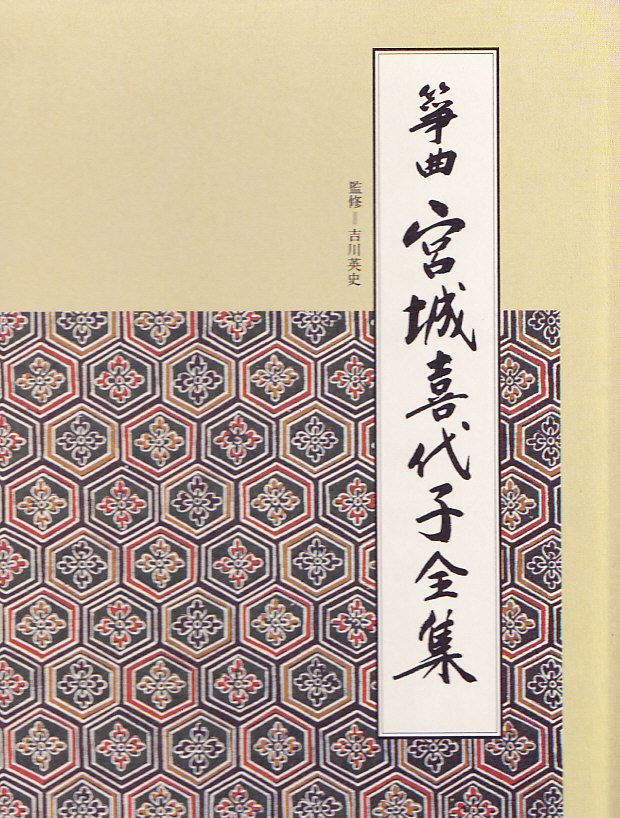 箏曲 宮城喜代子全集
監修=吉川英史